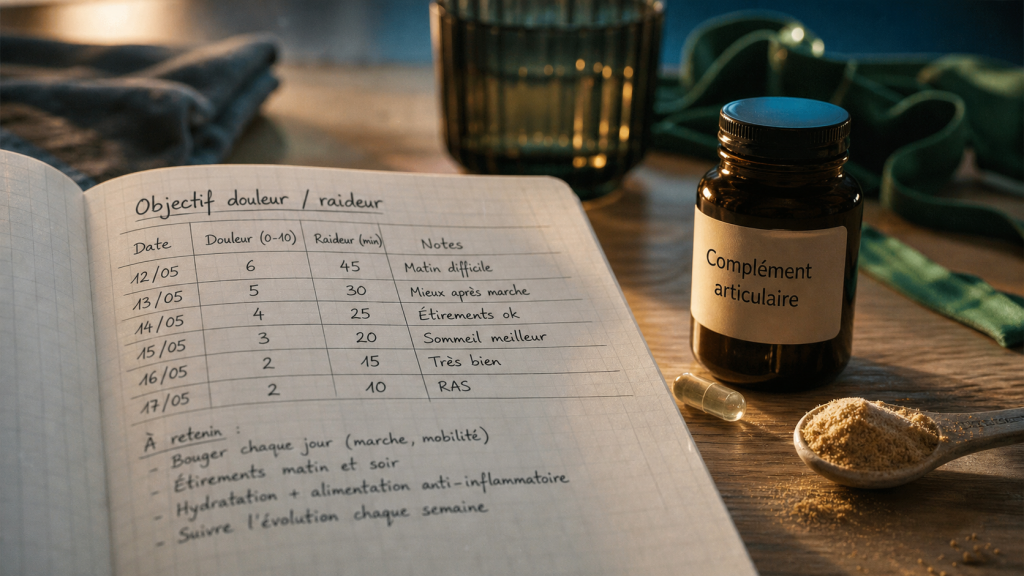 Objectif douleur / raideur
Date Douleur (0-10) Raideur (min) Notes
12/05 6 45 Matin difficile
13/05 5 30 Mieux après marche
14/05 4 25 Étirements ok
15/05 3 20 Sommeil meilleur
16/05 2 15 Très bien
17/05 2 10 RAS
À retenin :
- Bouger chaque jour (marche, mobilité)
- Étirements matin et soir
- Hydratation + alimentation anti-inflammatoire
- Suivre l'évolution chaque semaine
Complément
articulaire